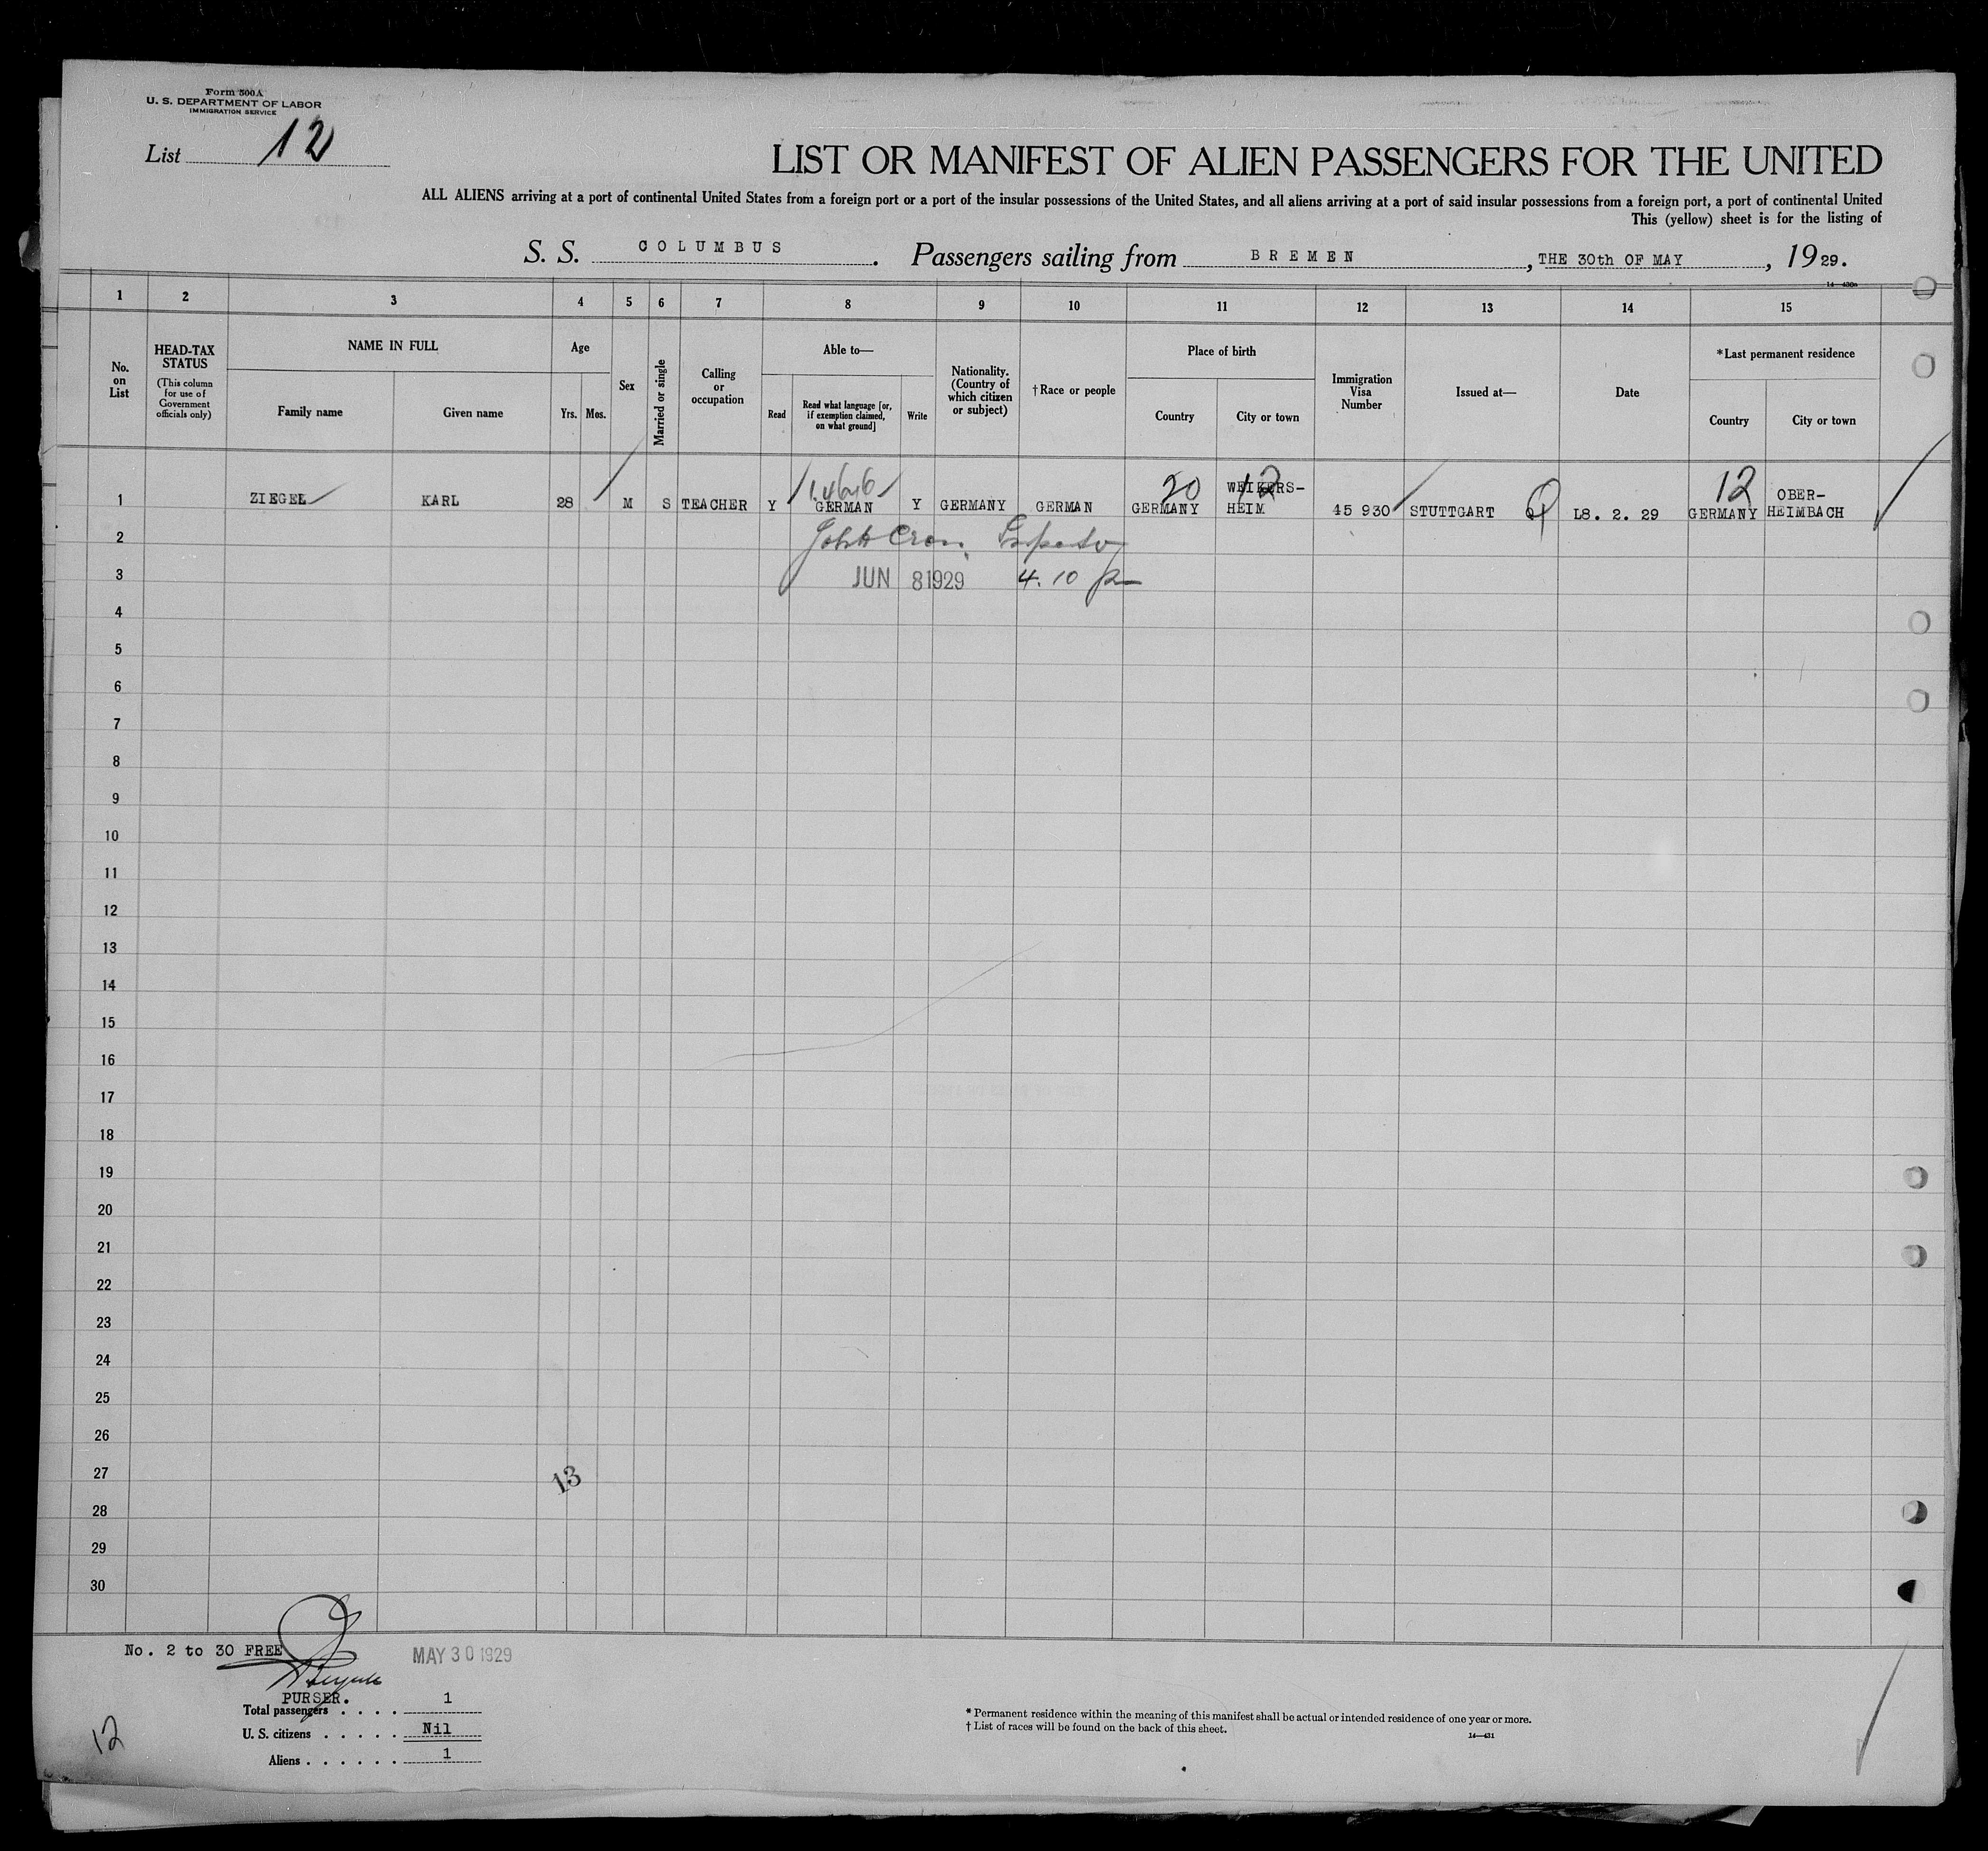 Form 500A
U. S. DEPARTMENT OF LABOR
IMMIGRATION SERVICE
List 12
LIST OR MANIFEST OF ALIEN PASSENGERS FOR THE UNITED
ALL ALIENS arriving at a port of continental United States from a foreign port or a port of the insular possessions of the United States, and all aliens arriving at a port of said insular possessions from a foreign port, a port of continental United
This (yellow) sheet is for the listing of
S. S. COLUMBUS. Passengers sailing from BREMEN, THE 30th OF MAY, 1929.
14—430a
1 2 3 4 5 6 7 8 9 10 11 12 13 14 15
No. on List
HEAD-TAX STATUS
(This column for use of Government officials only)
NAME IN FULL
Family name
Given name
Age
Yrs. Mos.
Sex
Married or single
Calling or occupation
Able to—
Read
Read what language [or, if exemption claimed, on what ground]
Write
Nationality. (Country of which citizen or subject)
†Race or people
Place of birth
Country
City or town
Immigration Visa Number
Issued at—
Date
*Last permanent residence
Country
City or town
20 12 12
1 ZIEGEL KARL 28 M S TEACHER Y GERMAN Y GERMANY GERMAN GERMANY WEIKERS-HEIM 45 930 STUTTGART 18. 2. 29 GERMANY OBER-HEIMBACH
2
3 JUN 8 1929 4.10
4
5
6
7
8
9
10
11
12
13
14
15
16
17
18
19
20
21
22
23
24
25
26
27
13
28
29
30
No. 2 to 30 FREE
MAY 30 1929
PURSER.
Total passengers . . . . 1
U. S. citizens . . . . . Nil
Aliens . . . . . . 1
12
* Permanent residence within the meaning of this manifest shall be actual or intended residence of one year or more.
† List of races will be found on the back of this sheet.
14—431